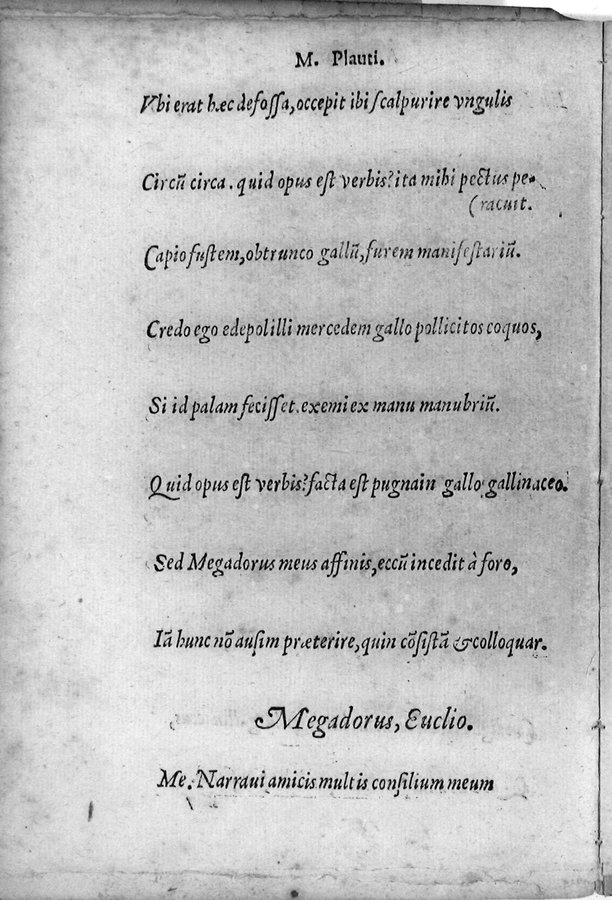 M. Plauti.
Vbi erat hæc defoſſa, occepit ibi ſcalpurire vngulis
Circũ circa. quid opus eſt verbis? ita mihi pectus pe-
(racuit.
Capio fuſtem, obtrunco gallũ, furem manifeſtariũ.
Credo ego edepol illi mercedem gallo pollicitos coquos,
Si id palam feciſſet. exemi ex manu manubriũ.
Quid opus eſt verbis? facta eſt pugna in gallo gallinaceo.
Sed Megadorus meus affinis, eccũ incedit à foro,
Iã hunc nõ auſim præterire, quin cõſiſtã & colloquar.
Megadorus, Euclio.
Me. Narraui amicis multis conſilium meum